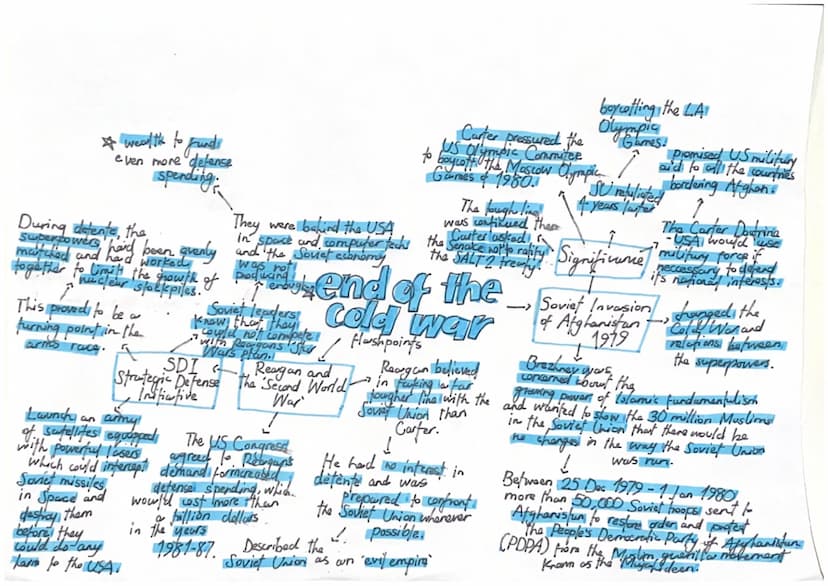 end of the
cold war
flashpoints
Soviet Invasion
of Afghanistan
1979
Significance
Carter pressured the
US Olympic Commitee
to boycott the Moscow Olympic
Games of 1980.
boycotting the LA
Olympic
Games.
SU retiliated
4 years later
promised US military
aid to all the countries
bordering Afghan.
The Carter Doctrine
- USA would use
military force if
neccessary to defend
it's national interests.
The tough line
was continued then
Carter asked
the Senate not to ratify
the SALT 2 treaty.
changed the
Cold War and
relations between
the superpowers.
Brezhnev was
concerned about the
growing power of Islamic fundamentalism
and wanted to show the 30 million Muslims
in the Soviet Union that there would be
no changes in the way the Soviet Union
was run.
Between 25 Dec 1979 - 1 Jan 1980
more than 50,000 Soviet troops sent to
Afghanistan to restore order and protect
the People's Democratic Party of Afghanistan
(PDPA) from the Muslim guerrilla movement
known as the Mujahideen.
Reagan and
The 'Second World
War'
Reagan believed
in taking a far
tougher line with the
Soviet Union than
Carter.
He had no interest in
détente and was
prepared to confront
the Soviet Union wherever
possible.
Described the
Soviet Union as an 'evil empire'
The US Congress
agreed to Reagan's
demand for increased
defense spending, which
would cost more than
a trillion dollars
in the years
1981-87.
SDI
Strategic Defense
Initiative
Soviet leaders
know that they
could not compete
with Reagan's Star
Wars plan.
They were behind the USA
in space and computer tech
and the Soviet economy
was not
producing
enough
☆ wealth to fund
even more defense
spending.
This proved to be a
turning point in the
arms race.
During détente the
superpowers had been evenly
matched and had worked
together to limit the growth of
nuclear stockpiles.
Launch an army
of satellites equipped
with powerful lasers
which could intercept
Soviet missiles
in space and
destroy them
before they
could do any
harm to the USA.